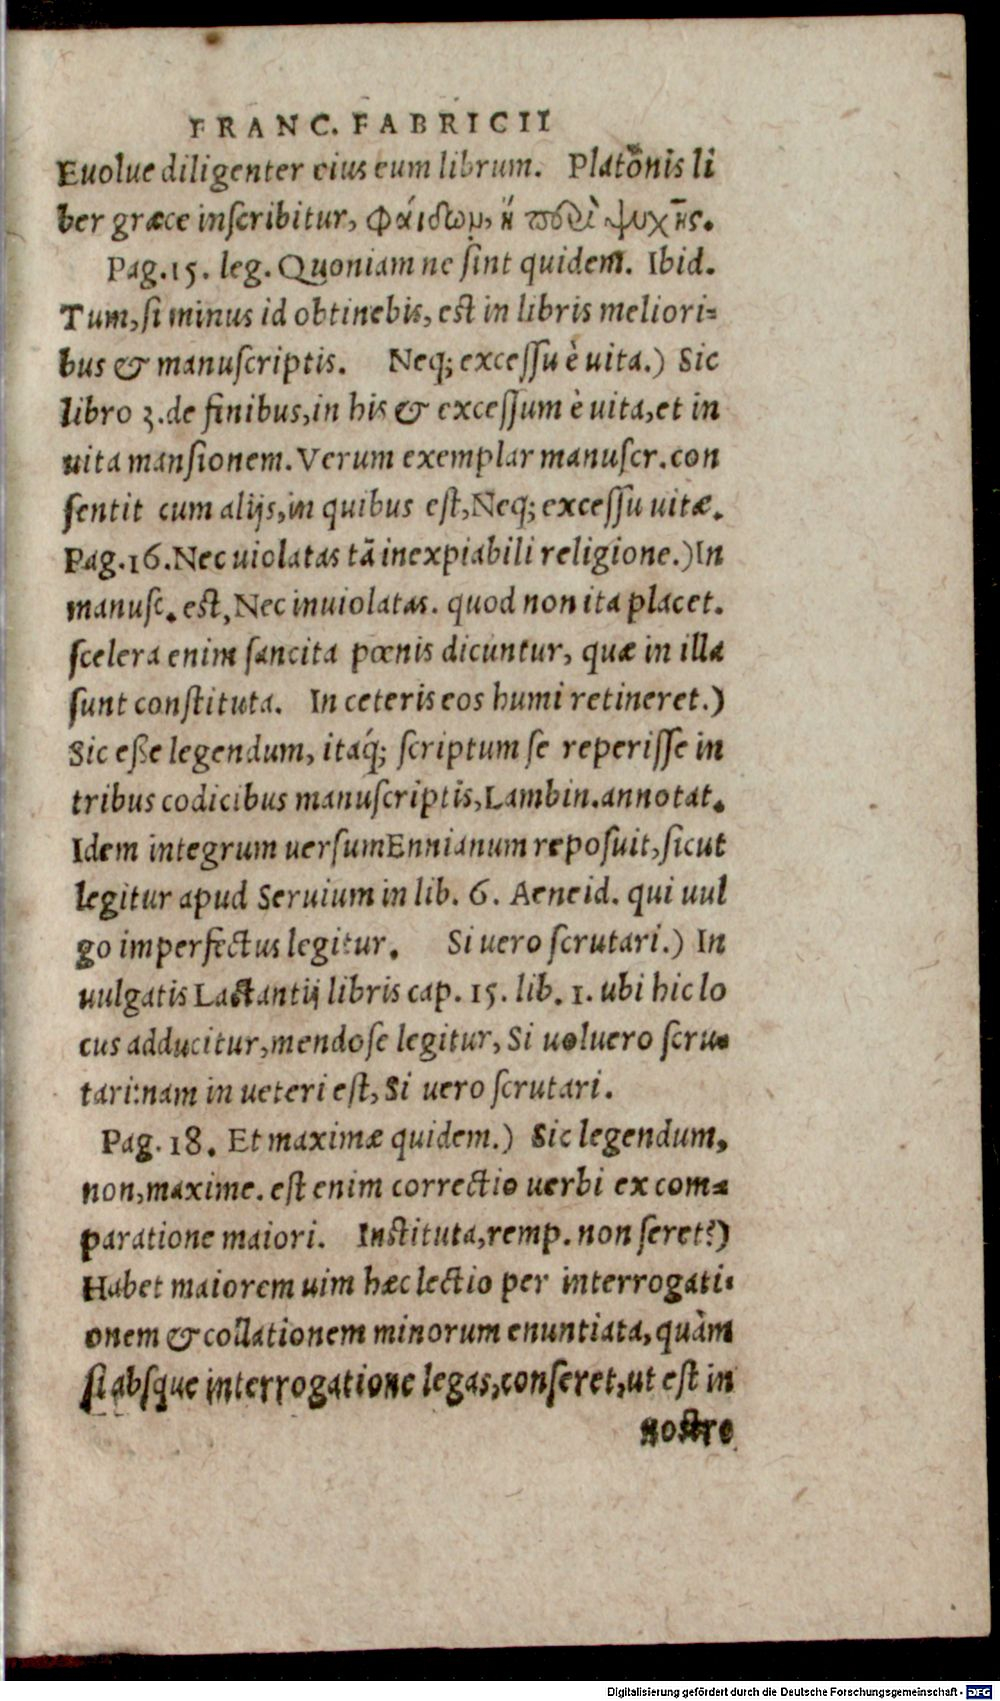 FRANC. FABRICII
Euolue diligenter eius eum librum. Platonis li
ber græce inſcribitur, Φαίδων, ἢ περὶ ψυχῆς.
Pag. 15. leg. Quoniam ne ſint quidem. Ibid.
Tum, ſi minus id obtinebis, eſt in libris meliori-
bus & manuſcriptis. Neq; exceſſu è uita.) Sic
libro 3. de finibus, in his & exceſſum è uita, et in
uita manſionem. Verum exemplar manuſcr. con
ſentit cum alijs, in quibus eſt, Neq; exceſſu uitæ.
Pag. 16. Nec uiolatas tā inexpiabili religione.) In
manuſc. eſt, Nec inuiolatas. quod non ita placet.
ſcelera enim ſancita pœnis dicuntur, quæ in illa
ſunt conſtituta. In ceteris eos humi retineret.)
Sic eße legendum, itaq́; ſcriptum ſe reperiſſe in
tribus codicibus manuſcriptis, Lambin. annotat.
Idem integrum uerſum Ennianum repoſuit, ſicut
legitur apud Seruium in lib. 6. Aeneid. qui uul
go imperfectus legitur. Si uero ſcrutari.) In
uulgatis Lactantij libris cap. 15. lib. 1. ubi hic lo
cus adducitur, mendoſe legitur, Si uoluero ſcru-
tari: nam in ueteri eſt, Si uero ſcrutari.
Pag. 18. Et maximæ quidem.) Sic legendum,
non, maxime. eſt enim correctio uerbi ex com-
paratione maiori. Inſtituta, remp. non ſeret?)
Habet maiorem uim hæc lectio per interrogati-
onem & collationem minorum enuntiata, quàm
ſi abſque interrogatione legas, conſeret, ut eſt in
noſtro
Digitalisierung gefördert durch die Deutsche Forschungsgemeinschaft - DFG